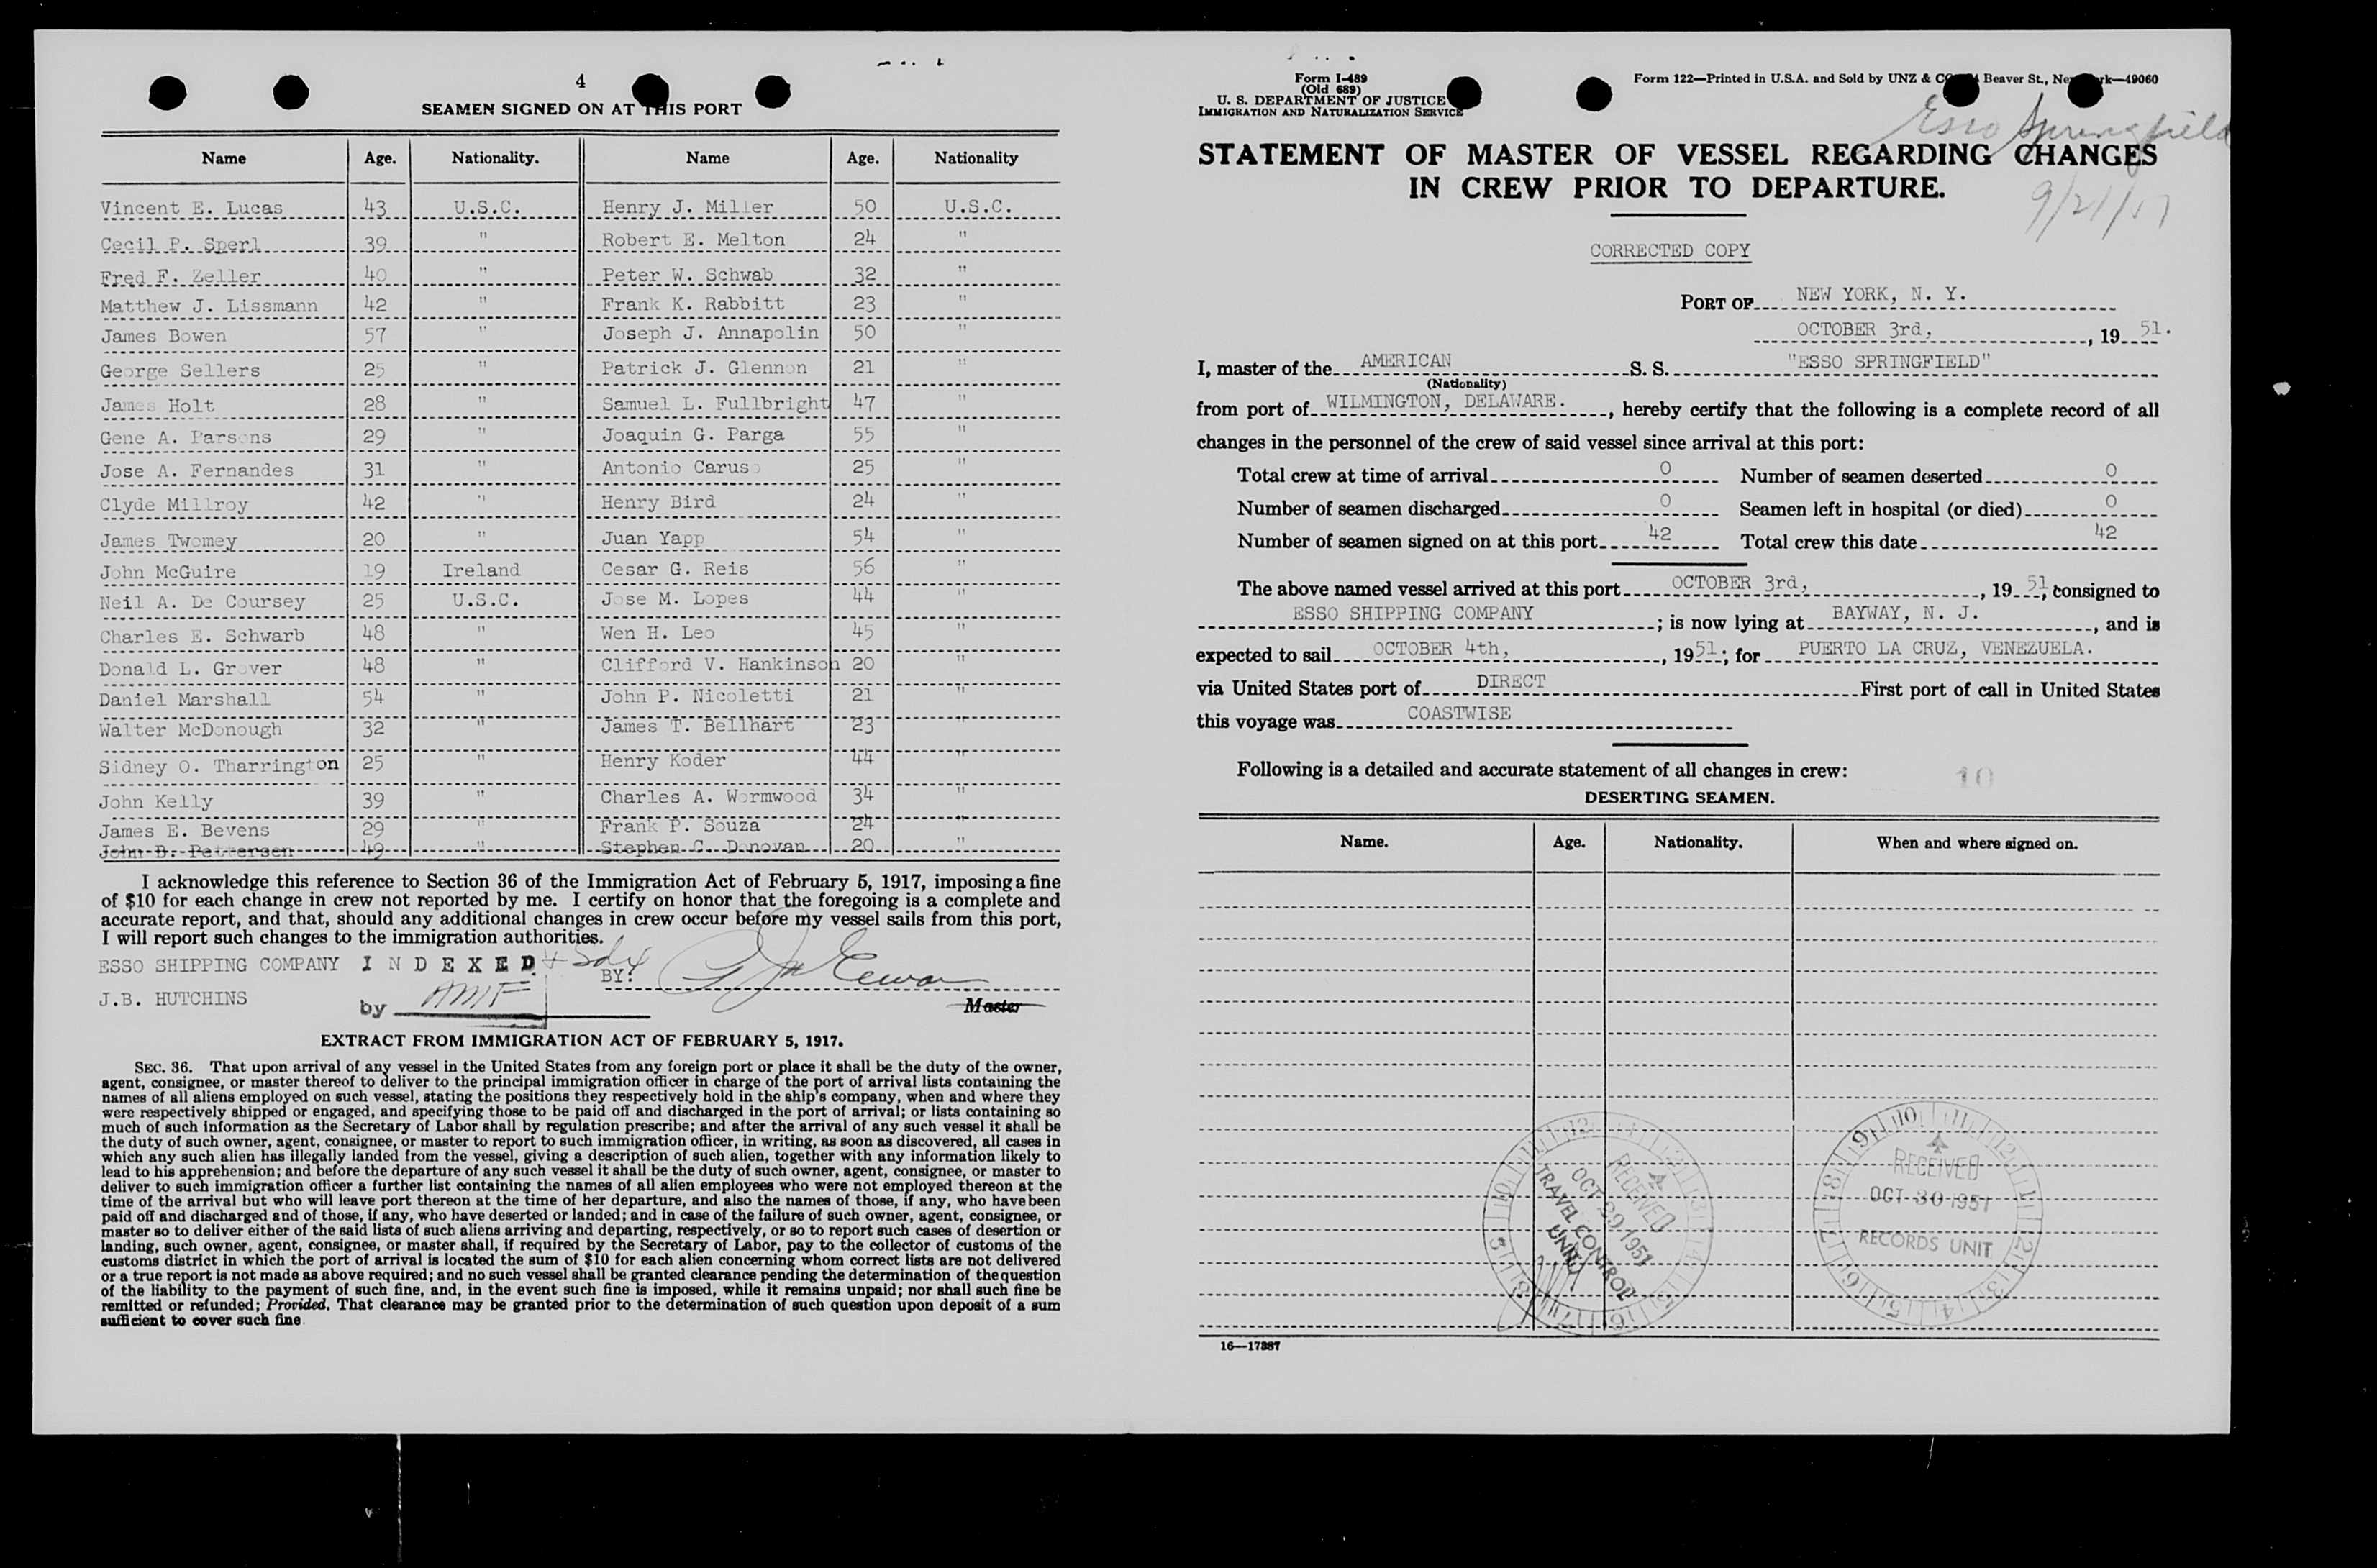 4
SEAMEN SIGNED ON AT THIS PORT
Name Age. Nationality. Name Age. Nationality
Vincent E. Lucas 43 U.S.C. Henry J. Miller 50 U.S.C.
Cecil P. Sperl 39 " Robert E. Melton 24 "
Fred F. Zeller 40 " Peter W. Schwab 32 "
Matthew J. Lissmann 42 " Frank K. Rabbitt 23 "
James Bowen 57 " Joseph J. Annapolin 50 "
George Sellers 25 " Patrick J. Glennon 21 "
James Holt 28 " Samuel L. Fullbright 47 "
Gene A. Parsons 29 " Joaquin G. Parga 55 "
Jose A. Fernandes 31 " Antonio Caruso 25 "
Clyde Millroy 42 " Henry Bird 24 "
James Twomey 20 " Juan Yapp 54 "
John McGuire 19 Ireland Cesar G. Reis 56 "
Neil A. De Coursey 25 U.S.C. Jose M. Lopes 44 "
Charles E. Schwarb 48 " Wen H. Leo 45 "
Donald L. Grover 48 " Clifford V. Hankinson 20 "
Daniel Marshall 54 " John P. Nicoletti 21 "
Walter McDonough 32 " James T. Bellhart 23 "
Sidney O. Tharrington 25 " Henry Koder 44 "
John Kelly 39 " Charles A. Wormwood 34 "
James E. Bevens 29 " Frank P. Souza 24 "
John B. Pettersen 49 " Stephen C. Donovan 20 "
I acknowledge this reference to Section 36 of the Immigration Act of February 5, 1917, imposing a fine
of $10 for each change in crew not reported by me. I certify on honor that the foregoing is a complete and
accurate report, and that, should any additional changes in crew occur before my vessel sails from this port,
I will report such changes to the immigration authorities.
ESSO SHIPPING COMPANY INDEXED
BY:
J.B. HUTCHINS
by AMF
Master
EXTRACT FROM IMMIGRATION ACT OF FEBRUARY 5, 1917.
SEC. 36. That upon arrival of any vessel in the United States from any foreign port or place it shall be the duty of the owner,
agent, consignee, or master thereof to deliver to the principal immigration officer in charge of the port of arrival lists containing the
names of all aliens employed on such vessel, stating the positions they respectively hold in the ship's company, when and where they
were respectively shipped or engaged, and specifying those to be paid off and discharged in the port of arrival; or lists containing so
much of such information as the Secretary of Labor shall by regulation prescribe; and after the arrival of any such vessel it shall be
the duty of such owner, agent, consignee, or master to report to such immigration officer, in writing, as soon as discovered, all cases in
which any such alien has illegally landed from the vessel, giving a description of such alien, together with any information likely to
lead to his apprehension; and before the departure of any such vessel it shall be the duty of such owner, agent, consignee, or master to
deliver to such immigration officer a further list containing the names of all alien employees who were not employed thereon at the
time of the arrival but who will leave port thereon at the time of her departure, and also the names of those, if any, who have been
paid off and discharged and of those, if any, who have deserted or landed; and in case of the failure of such owner, agent, consignee, or
master so to deliver either of the said lists of such aliens arriving and departing, respectively, or so to report such cases of desertion or
landing, such owner, agent, consignee, or master shall, if required by the Secretary of Labor, pay to the collector of customs of the
customs district in which the port of arrival is located the sum of $10 for each alien concerning whom correct lists are not delivered
or a true report is not made as above required; and no such vessel shall be granted clearance pending the determination of the question
of the liability to the payment of such fine, and, in the event such fine is imposed, while it remains unpaid; nor shall such fine be
remitted or refunded; Provided, That clearance may be granted prior to the determination of such question upon deposit of a sum
sufficient to cover such fine.
Form I-489
(Old 689)
U. S. DEPARTMENT OF JUSTICE
IMMIGRATION AND NATURALIZATION SERVICE
Form 122—Printed in U.S.A. and Sold by UNZ & CO Beaver St., New York—49060
Esso Springfield
STATEMENT OF MASTER OF VESSEL REGARDING CHANGES
IN CREW PRIOR TO DEPARTURE.
9/21/51
CORRECTED COPY
PORT OF NEW YORK, N. Y.
OCTOBER 3rd, , 19 51.
I, master of the AMERICAN S. S. "ESSO SPRINGFIELD"
(Nationality)
from port of WILMINGTON, DELAWARE. , hereby certify that the following is a complete record of all
changes in the personnel of the crew of said vessel since arrival at this port:
Total crew at time of arrival 0 Number of seamen deserted 0
Number of seamen discharged 0 Seamen left in hospital (or died) 0
Number of seamen signed on at this port 42 Total crew this date 42
The above named vessel arrived at this port OCTOBER 3rd, , 19 51, consigned to
ESSO SHIPPING COMPANY ; is now lying at BAYWAY, N. J. , and is
expected to sail OCTOBER 4th, , 1951; for PUERTO LA CRUZ, VENEZUELA.
via United States port of DIRECT First port of call in United States
this voyage was COASTWISE
Following is a detailed and accurate statement of all changes in crew:
10
DESERTING SEAMEN.
Name. Age. Nationality. When and where signed on.
RECEIVED
OCT 29 1951
TRAVEL CONTROL
UNIT
RECEIVED
OCT 30 1951
RECORDS UNIT
16—17287